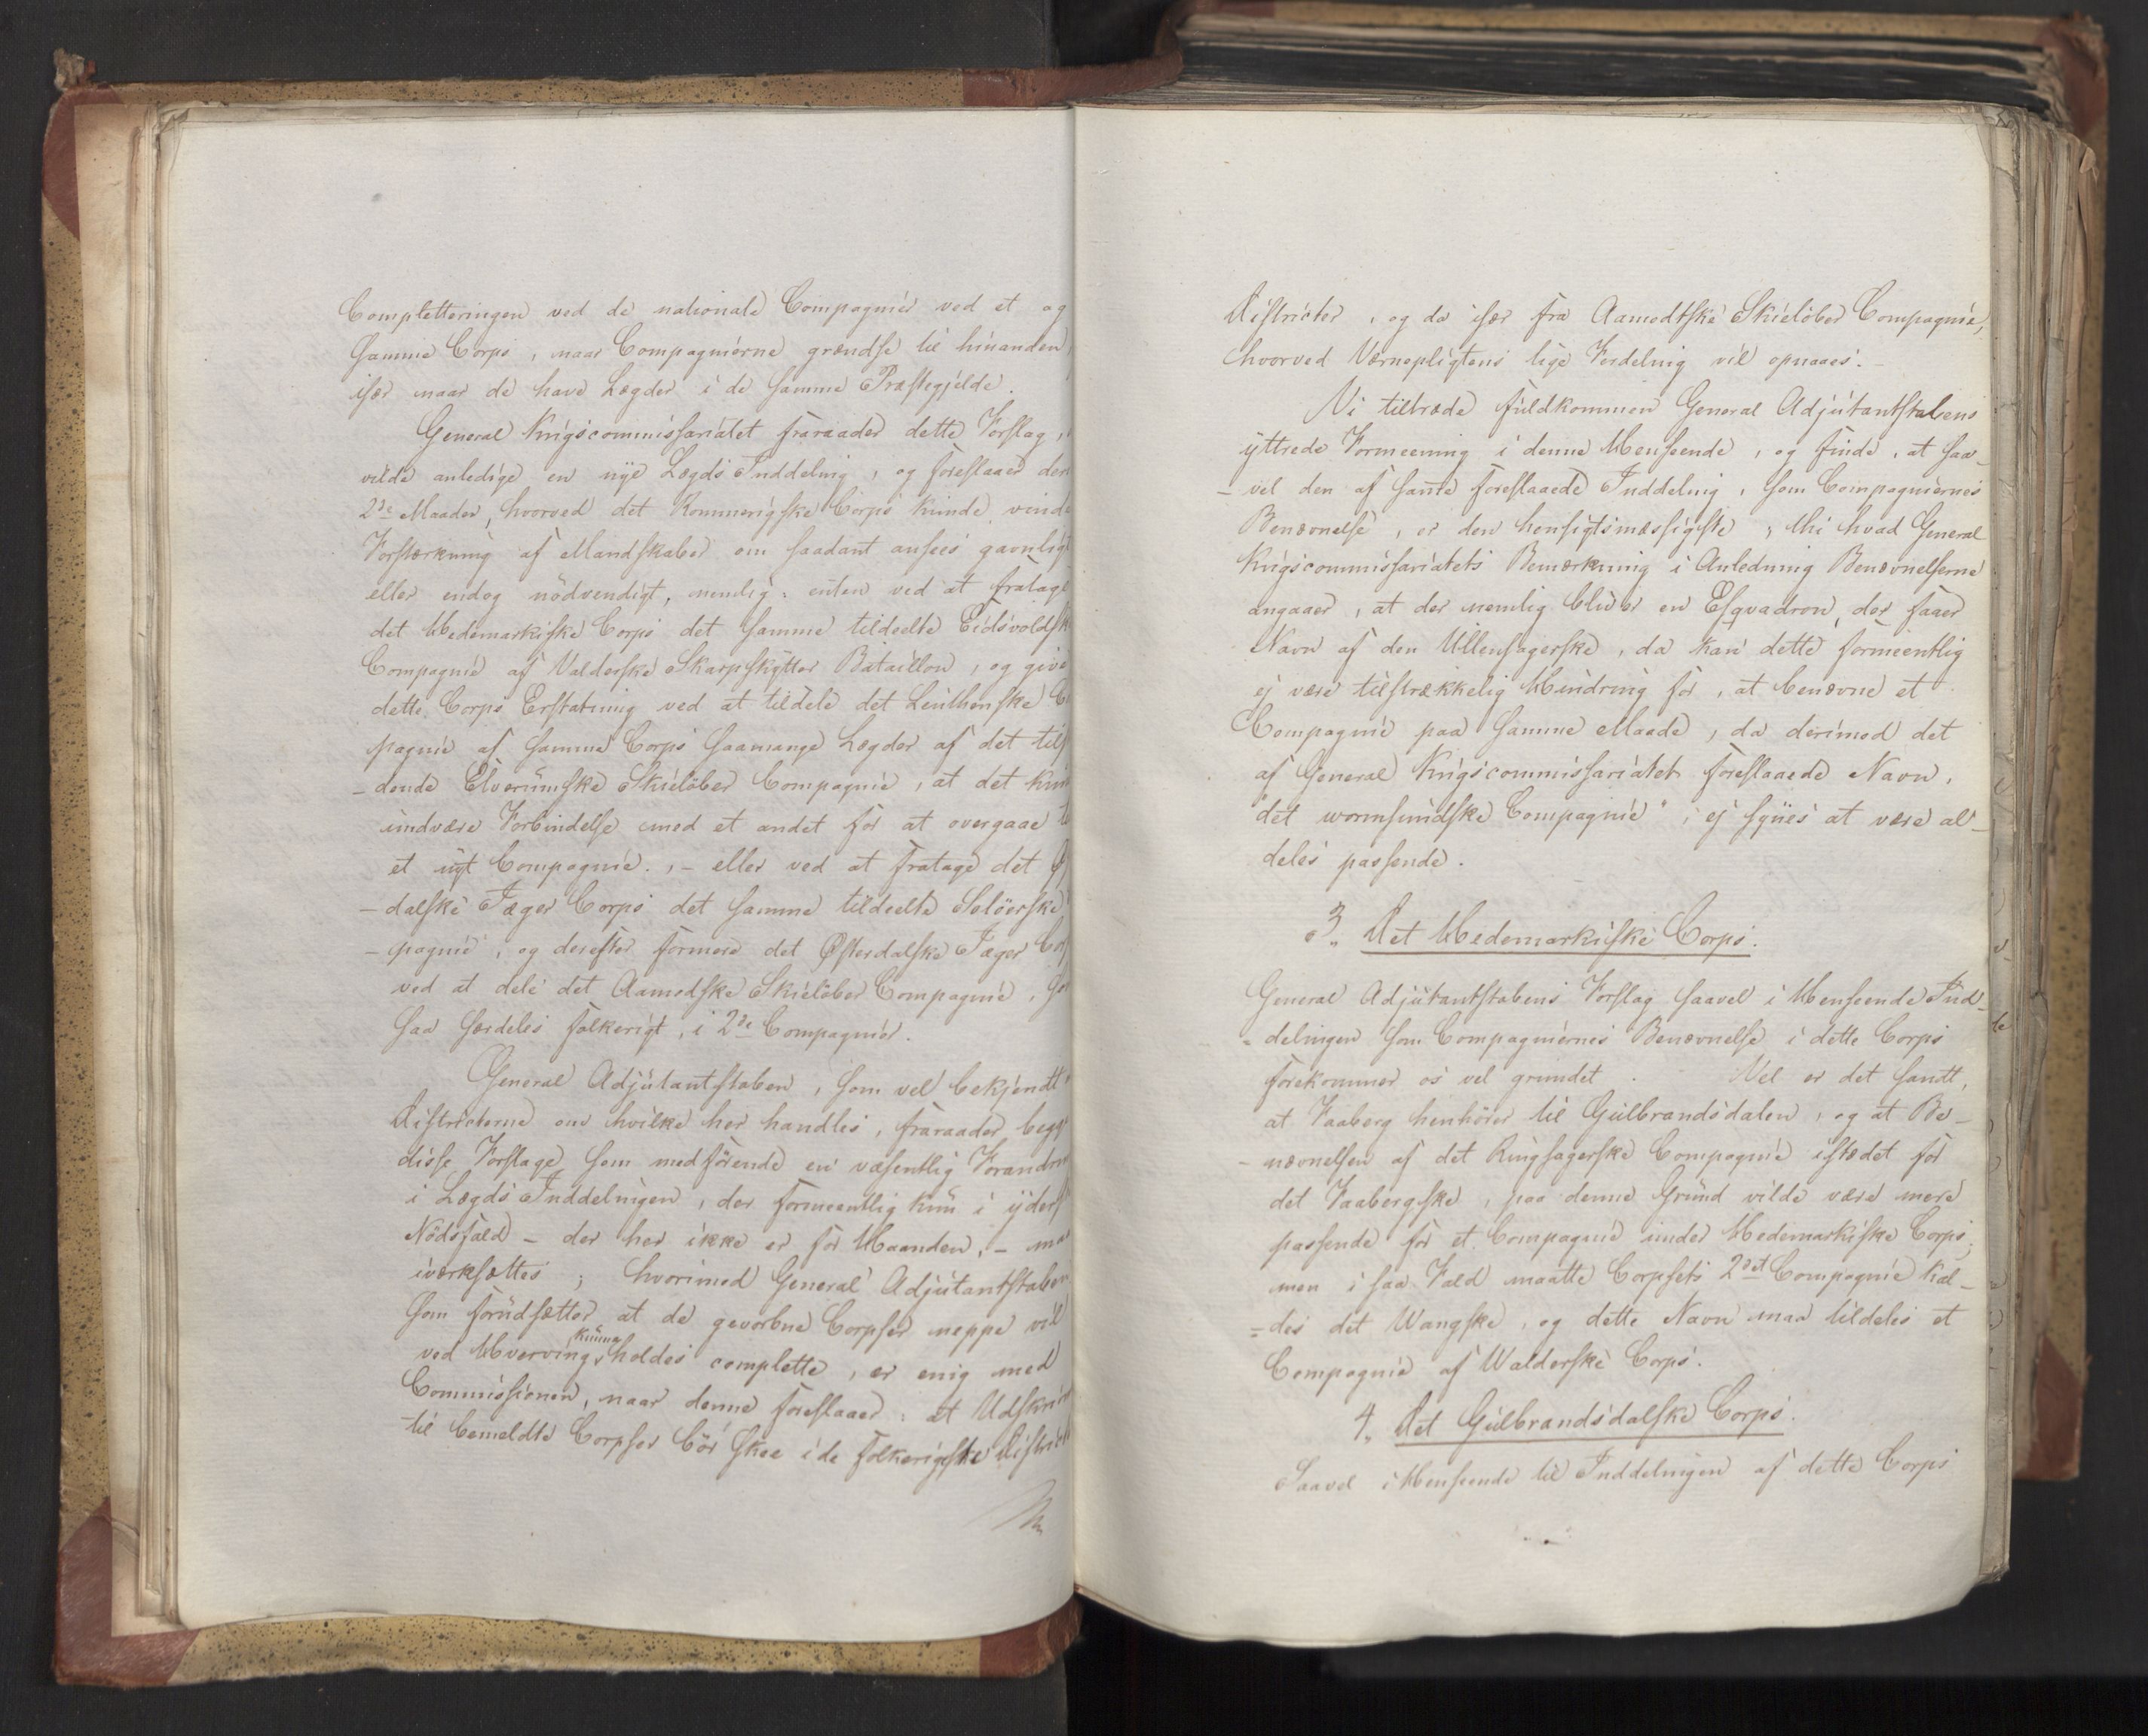 Completteringen ved de nationale Compagnier ved et og
samme Corps, naar Compagnierne grændse til hinanden,
især naar de have Lægder i de samme Præstegjelde.
General Krigscommissariatet fraraader dette Forslag,
vilde anledige en nye Lægds Inddeling, og foreslaaer den
2de Maader, hvorved det Rommerigske Corps kunde vinde
Forstærkning af Mandskaber om saadant ansees gavnligt
eller endog nödvendigt, nemlig: enten ved at fratage
det Hedemarkiske Corps det samme tildeelte Eidsvoldsk
Compagnie af Valderske Skarpskytter Bataillon, og give
dette Corps Erstatning ved at tildele det Leuthenske C
pagnie af samme Corps saamange Lægder af det tils
-dende Elverumske Skielöber Compagnie, at det kun
undvære Forbindelse med et andet for at overgaae t
et nyt Compagnie., - eller ved at fratage det Ø
-dalske Jæger Corps det samme tildeelte Solöerske
-pagnie, og derefter formere det Østerdalske Jæger Cor
ved at dele det Aamodske Skielöber Compagnie, so
saa særdeles folkerigt, i 2de Compagnier.
General Adjutantstaben, som vel bekjendt
Districterne om hvilke her handles, fraraader begg
disse Forslage som medförende en væsentlig Forandr
i Lægds Inddelingen, der formeentlig kun i yders
Nödsfald - der her ikke er for Haanden, - ma
iværksættes; hvorimod General Adjutantstaben
som forudsætter at de gevorbne Corpser neppe vil
kunne
ved Hverving holdes complette, er enig med
Commissionen, naar denne foreslaaer: at Udskri
til bemeldte Corpser bör skee i de folkerigste Distric
Districter, og da især fra Aamodtske Skielöber Compagnie,
hvorved Værnepligtens lige Fordeling vil opnaaes. -
Vi tiltræde fuldkommen General Adjutantstabens
yttrede Formeening i denne Henseende, og finde, at saa-
-vel den af samme foreslaaede Inddeling, som Compagniernes
Benævnelse, er den hensigtsmæssigste; thi hvad General
Krigscommissariatets Bemærkning i Anledning Benævnelserne
angaaer, at der nemlig bliver en Esqvadron, der faaer
Navn af den Ullensagerske, da kan dette formeentlig
ej være tilstrækkelig Hindring for, at benævne et
Compagnie paa samme Maade, da derimod det
af General Krigscommissariatet foreslaaede Navn,
"det wormsundske Compagnie", ej synes at være al-
deles passende.
3., Det Hedemarkiske Corps.
General Adjutantstabens Forslag saavel i Henseende Ind-
-delingen som Compagniernes Benævnelse i dette Corps
forekommer os vel grundet. Vel er det sandt,
at Faaberg henhörer til Gulbrandsdalen, og at Be-
-nævnelsen af det Ringsagerske Compagnie istædet for
det Faabergske, paa denne Grund vilde være mere
passende for et Compagnie under Hedemarkiske Corps;
men i saa Fald maatte Corpsets 2det Compagnie kal-
=des det Wangske, og dette Navn maa tildeles et
Compagnie af Walderske Corps.
4., Det Gulbrandsdalske Corps.
Saavel i Henseende til Inddelingen af dette Corps